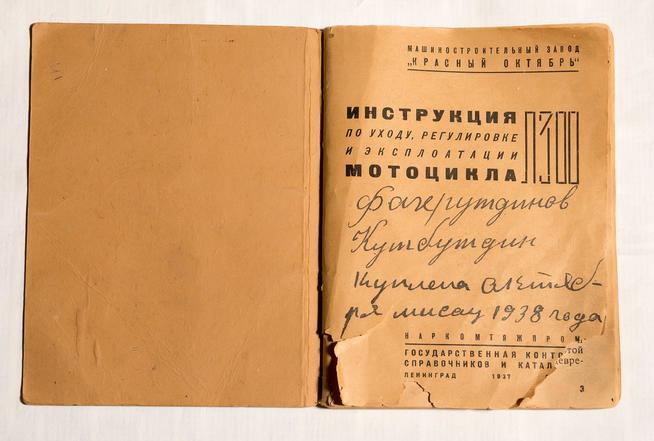 МАШИНОСТРОИТЕЛЬНЫЙ ЗАВОД
„КРАСНЫЙ ОКТЯБРЬ"
ИНСТРУКЦИЯ
ПО УХОДУ, РЕГУЛИРОВКЕ
И ЭКСПЛОАТАЦИИ
МОТОЦИКЛА
Л300
Фахрутдинов
Кутбутдин
Куплена октяб-
ря мисац 1938 года
НАРКОМТЯЖПРОМ
ГОСУДАРСТВЕННАЯ КОНТ
той
СПРАВОЧНИКОВ И КАТАЛ
ЛЕНИНГРАД 1937
3